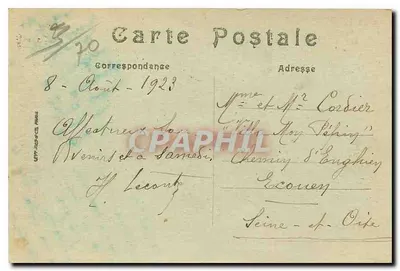 93/70
Carte Postale
Correspondance
Adresse
8 - Août - 1923
Affectueux Sou
venirs et à Samedi
H. Leconte
Mme et Mr Cordier
"Villa Mon
Chemin d'Enghien
Ecouen
Seine - et - Oise
CPAPHIL